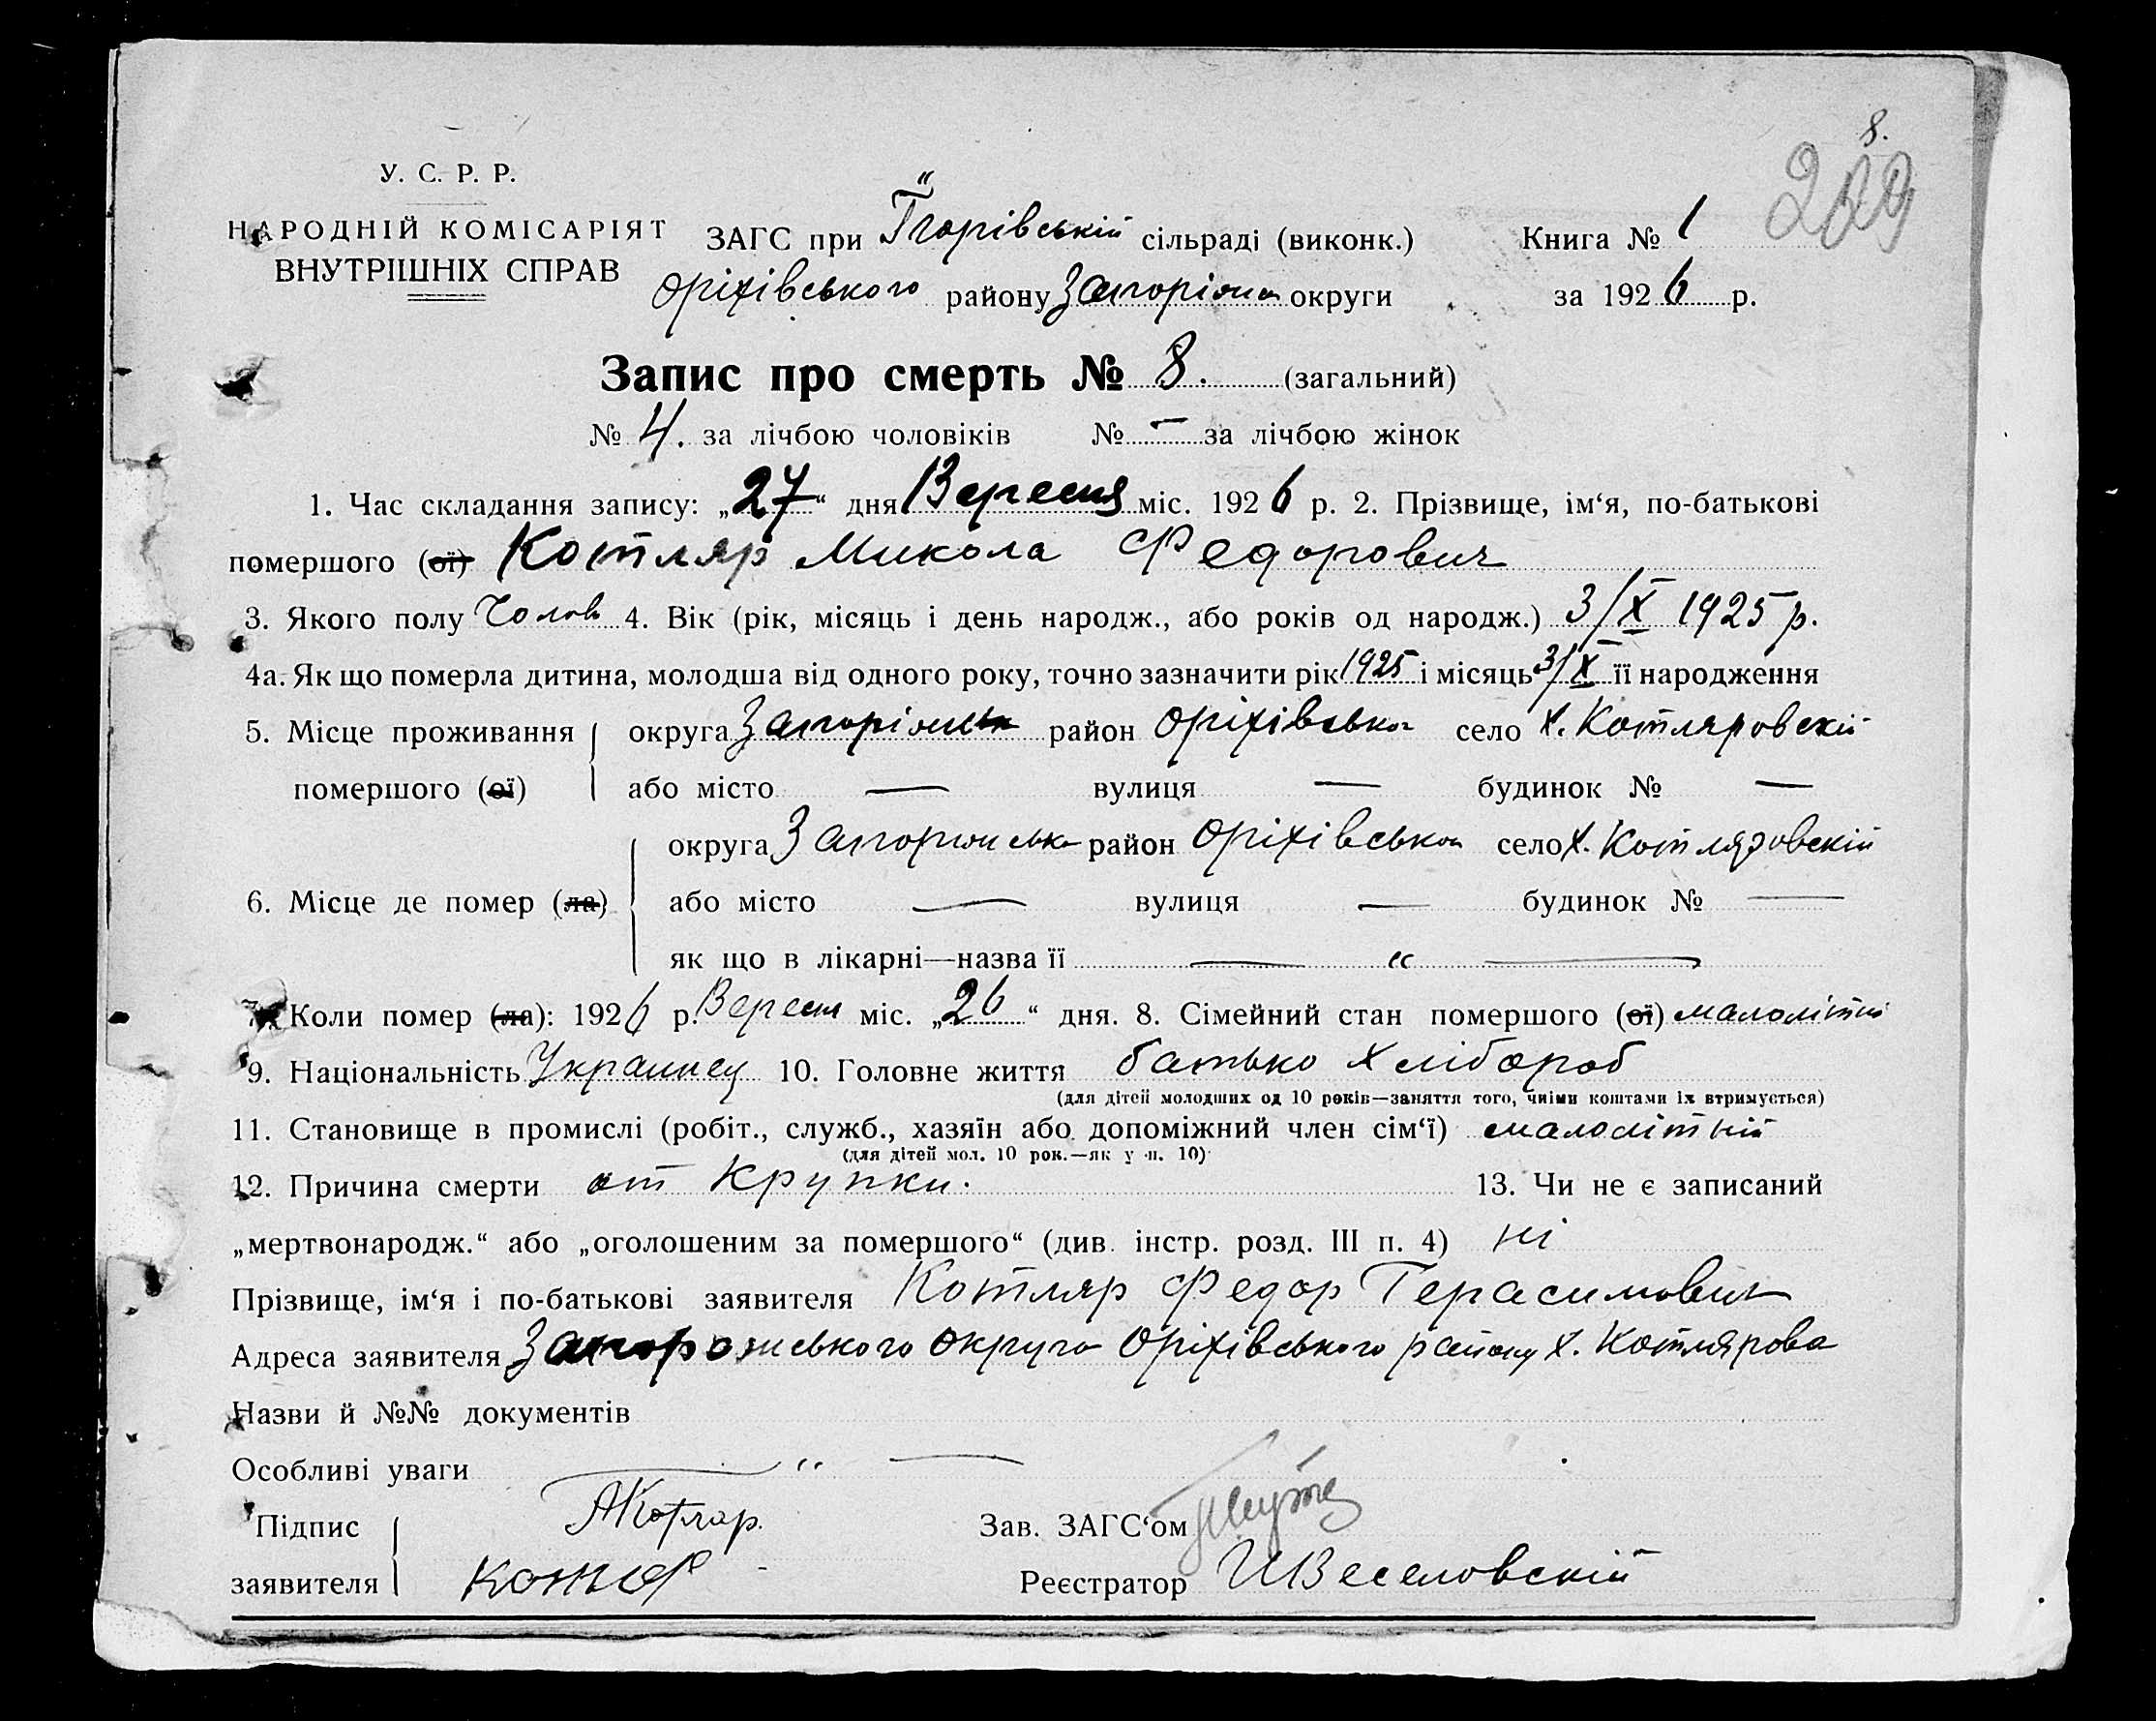 8.
У. С. Р. Р.
НАРОДНІЙ КОМІСАРІЯТ
ВНУТРІШНІХ СПРАВ
ЗАГС при Ігорівській сільраді (виконк.) Книга № 1
Оріхівського району округи за 1926 р.
Запис про смерть № 8. (загальний)
№ 4. за лічбою чоловіків № — за лічбою жінок
1. Час складання запису: „27“ дня Вересня міс. 1926 р. 2. Прізвище, ім‘я, по-батькові
помершого (ої) Котляр Микола Федорович
3. Якого полу Чолов 4. Вік (рік, місяць і день народж., або років од народж.) 3/X 1925 р.
4а. Як що померла дитина, молодша від одного року, точно зазначити рік 1925 і місяць 3/X її народження
5. Місце проживання округа район Оріхівська село х. Котляровскій
помершого (ої) або місто — вулиця — будинок № —
округа район Оріхівська село х. Котляровскій
6. Місце де помер (ла) або місто — вулиця — будинок № —
як що в лікарні—назва її — “ —
7. Коли помер (ла): 1926 р. Вересня міс. „26“ дня. 8. Сімейний стан помершого (ої) малолітній
9. Національність Украинец 10. Головне життя батько хлібороб
(для дітей молодших од 10 років—заняття того, чиїми коштами їх втримується)
11. Становище в промислі (робіт., служб., хазяїн або допоміжний член сім‘ї) малолітній
(для дітей мол. 10 рок.—як у п. 10)
12. Причина смерти от Крупки. 13. Чи не є записаний
„мертвонародж.“ або „оголошеним за помершого“ (див. інстр. розд. III п. 4) ні
Прізвище, ім‘я і по-батькові заявителя Котляр Федор Герасимович
Адреса заявителя Запорожського округа Оріхівського району х. Котлярова
Назви й №№ документів
Особливі уваги — “ —
Підпис Котляр. Зав. ЗАГС‘ом
заявителя Реєстратор И Веселовскій